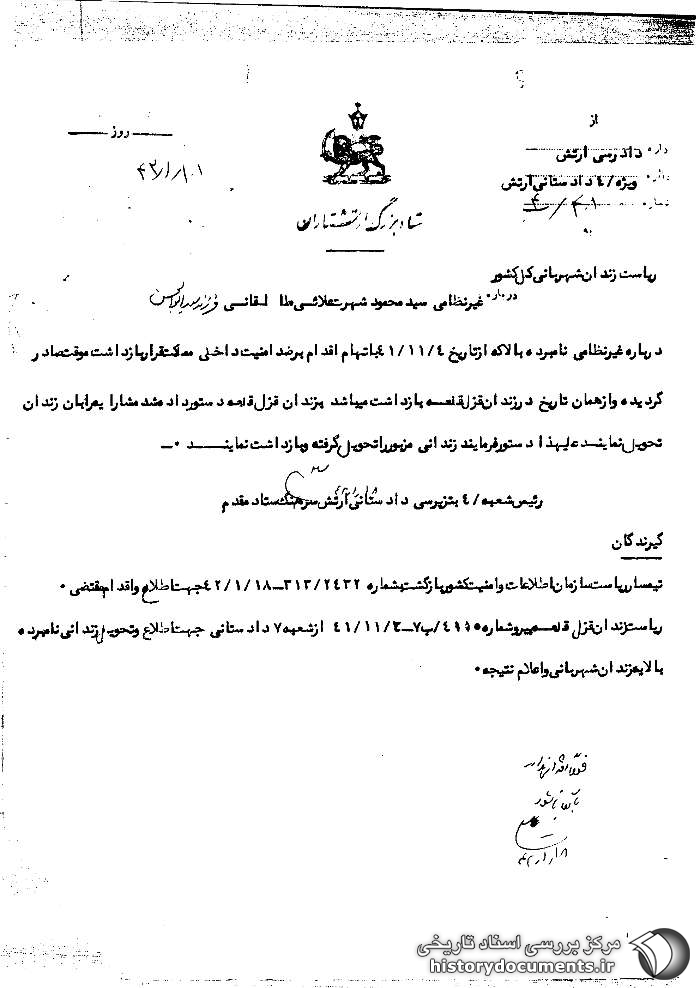 از
اداره دادرسی ارتش
دائره ویژه/ ٤ دادستانی ارتش
شماره
روز
ستاد بزرگ ارتشتاران
ریاست زندان شهربانی کل کشور
درباره غیرنظامی سید محمود شهرت علائی طالقانی فرزند سید ابوالحسن
درباره غیرنظامی نامبرده بالا که از تاریخ ٤١/١١/٤ باتهام اقدام بر ضد امنیت داخلی مملکت قرار بازداشت موقت صادر
گردیده و از همان تاریخ در زندان قزل قلعه بازداشت میباشد بزندان قزل قلعه دستور داده شد مشارالیه را بان زندان
تحویل نمایند علیهذا دستور فرمایند زندانی مزبور را تحویل گرفته و بازداشت نمایند ۰ــ
رئیس شعبه / ٤ بازپرسی دادستانی ارتش سرهنگ ستاد مقدم
گیرندگان
تیمسار ریاست سازمان اطلاعات و امنیت کشور بازگشت بشماره ٣١٣/٢٤٣٢ــ٤٢/١/١٨ جهت اطلاع و اقدام مقتضی ۰
ریاست زندان قزل قلعه پیرو شماره ٧ــ٤١/١١/٤ از شعبه ٧ دادستانی جهت اطلاع و تحویل زندانی نامبرده
بالا به زندان شهربانی و اعلام نتیجه ۰
مرکز بررسی اسناد تاریخی
historydocuments.ir